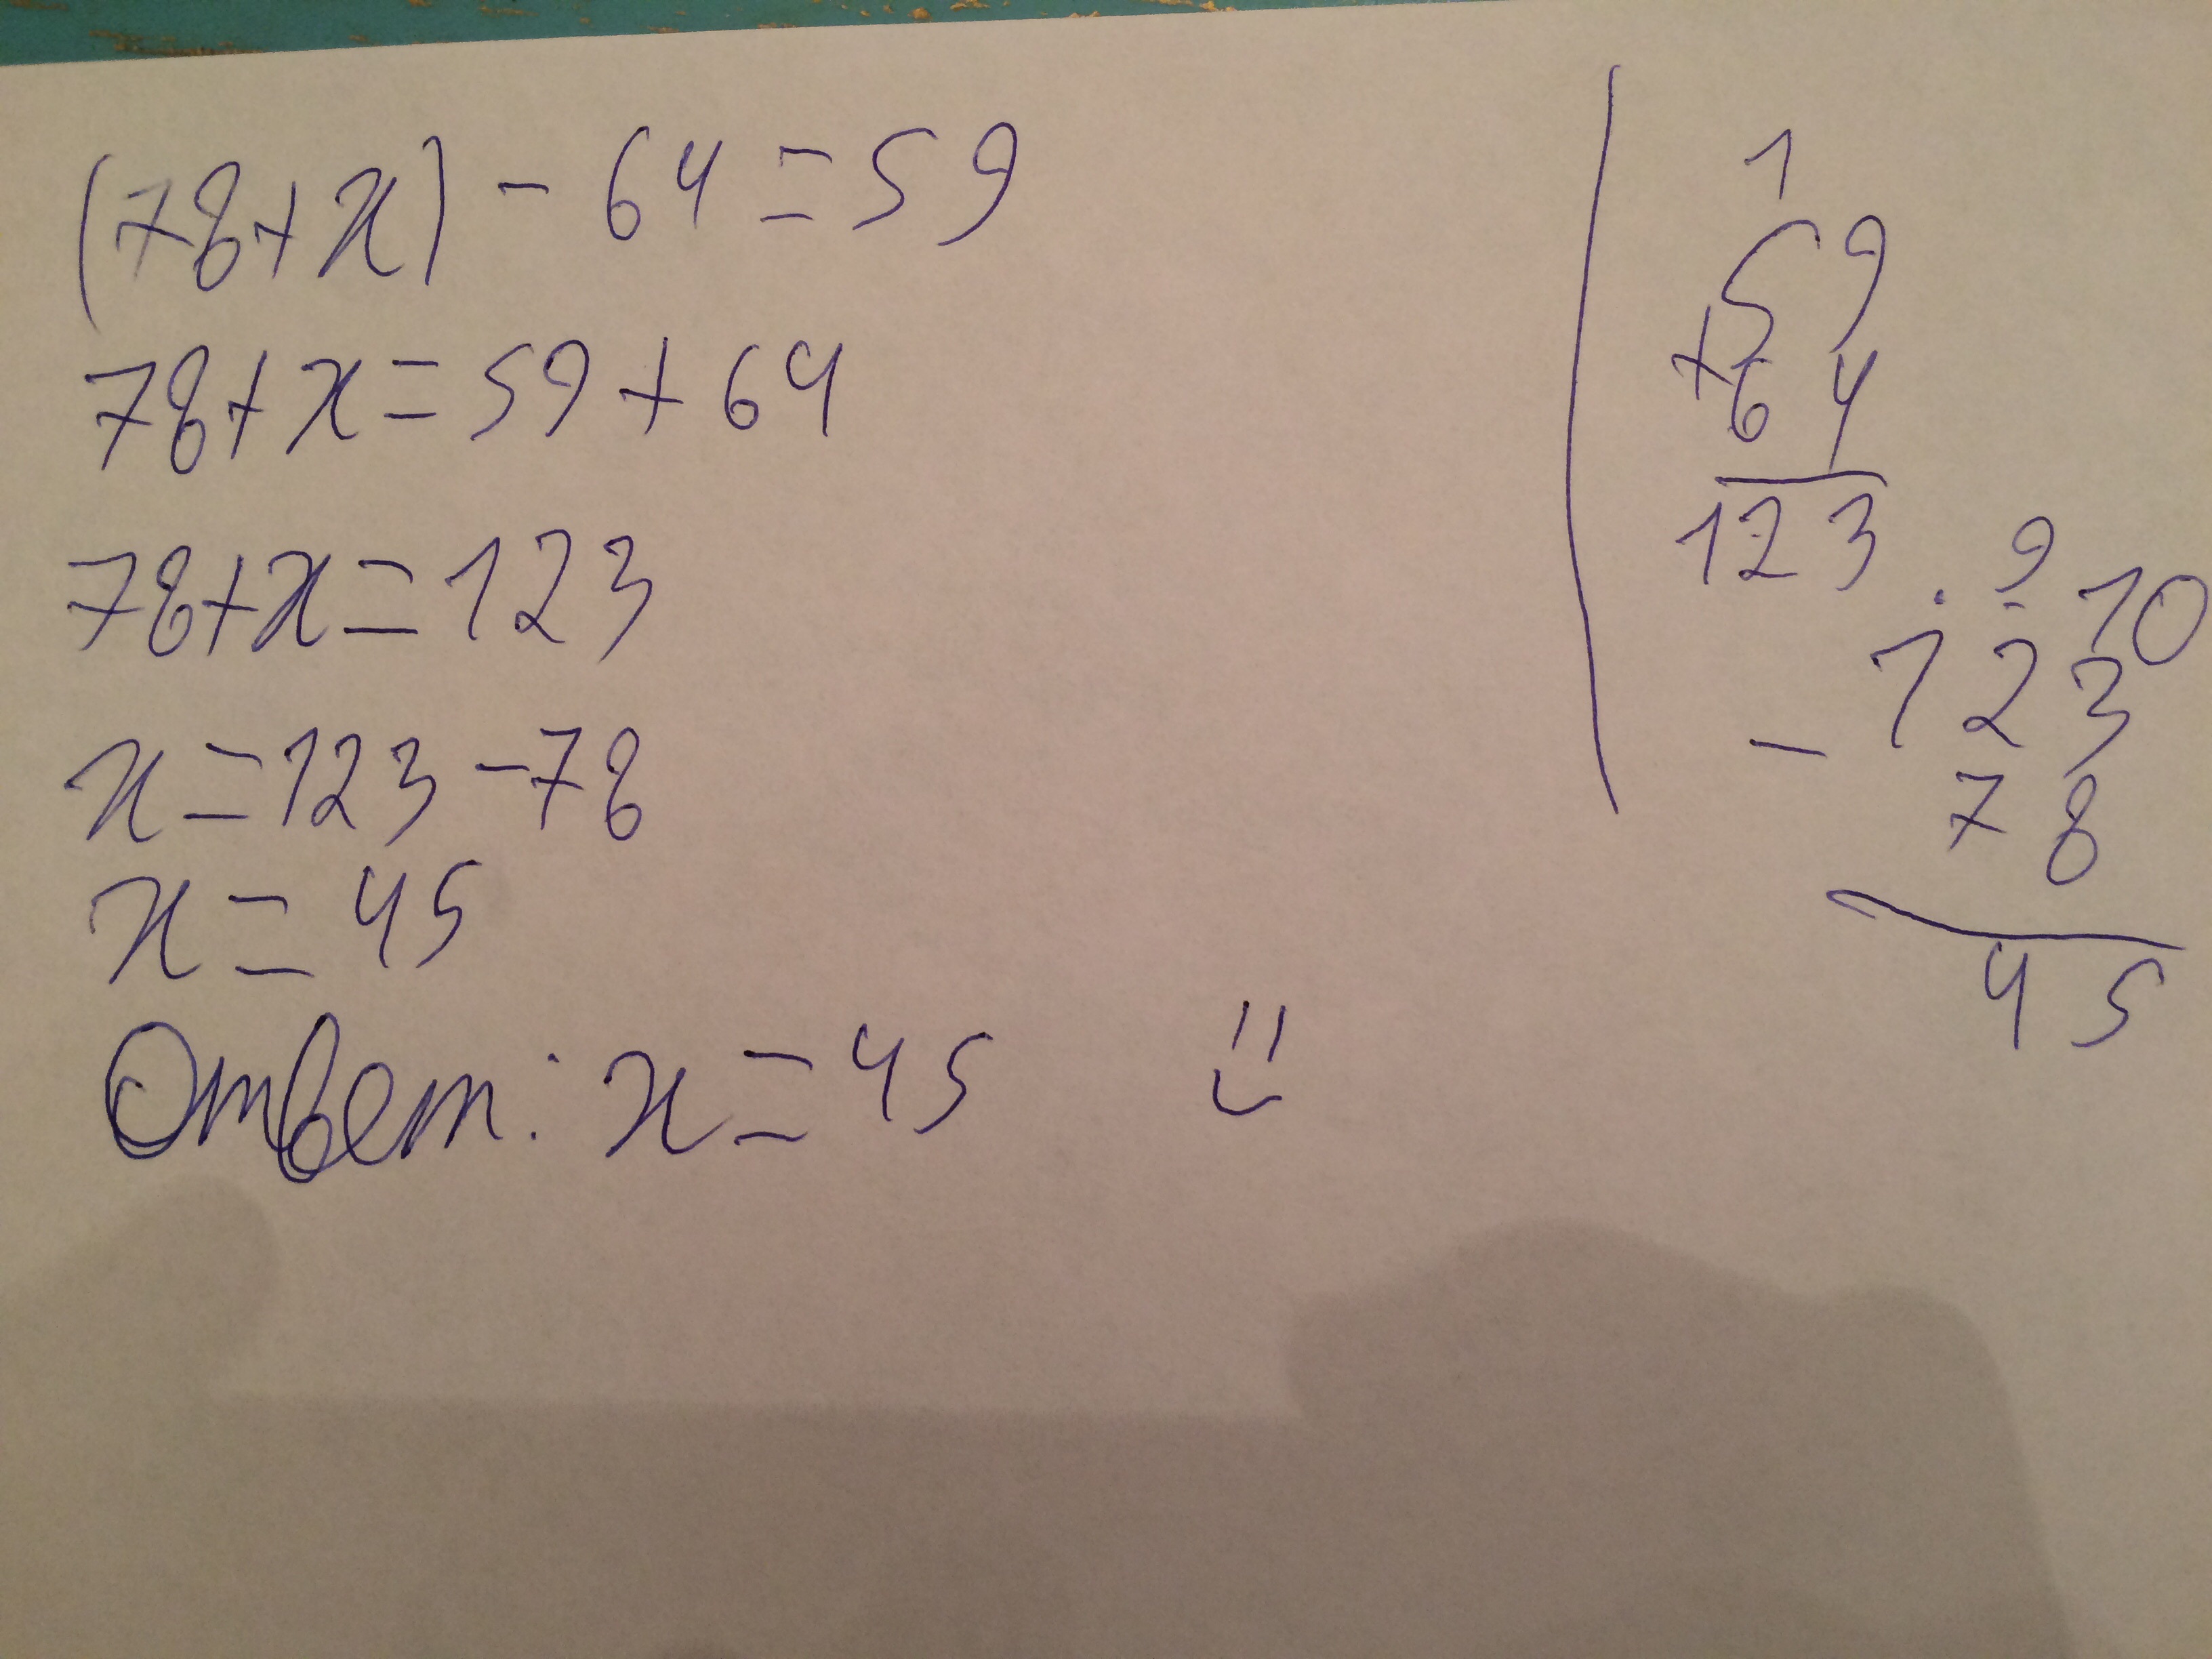 (78+x) - 64 = 59
78+x = 59 + 64
78+x = 123
x = 123 - 78
x = 45
Ответ: x = 45
1
59
+64
123
. 9 10
- 123
78
45